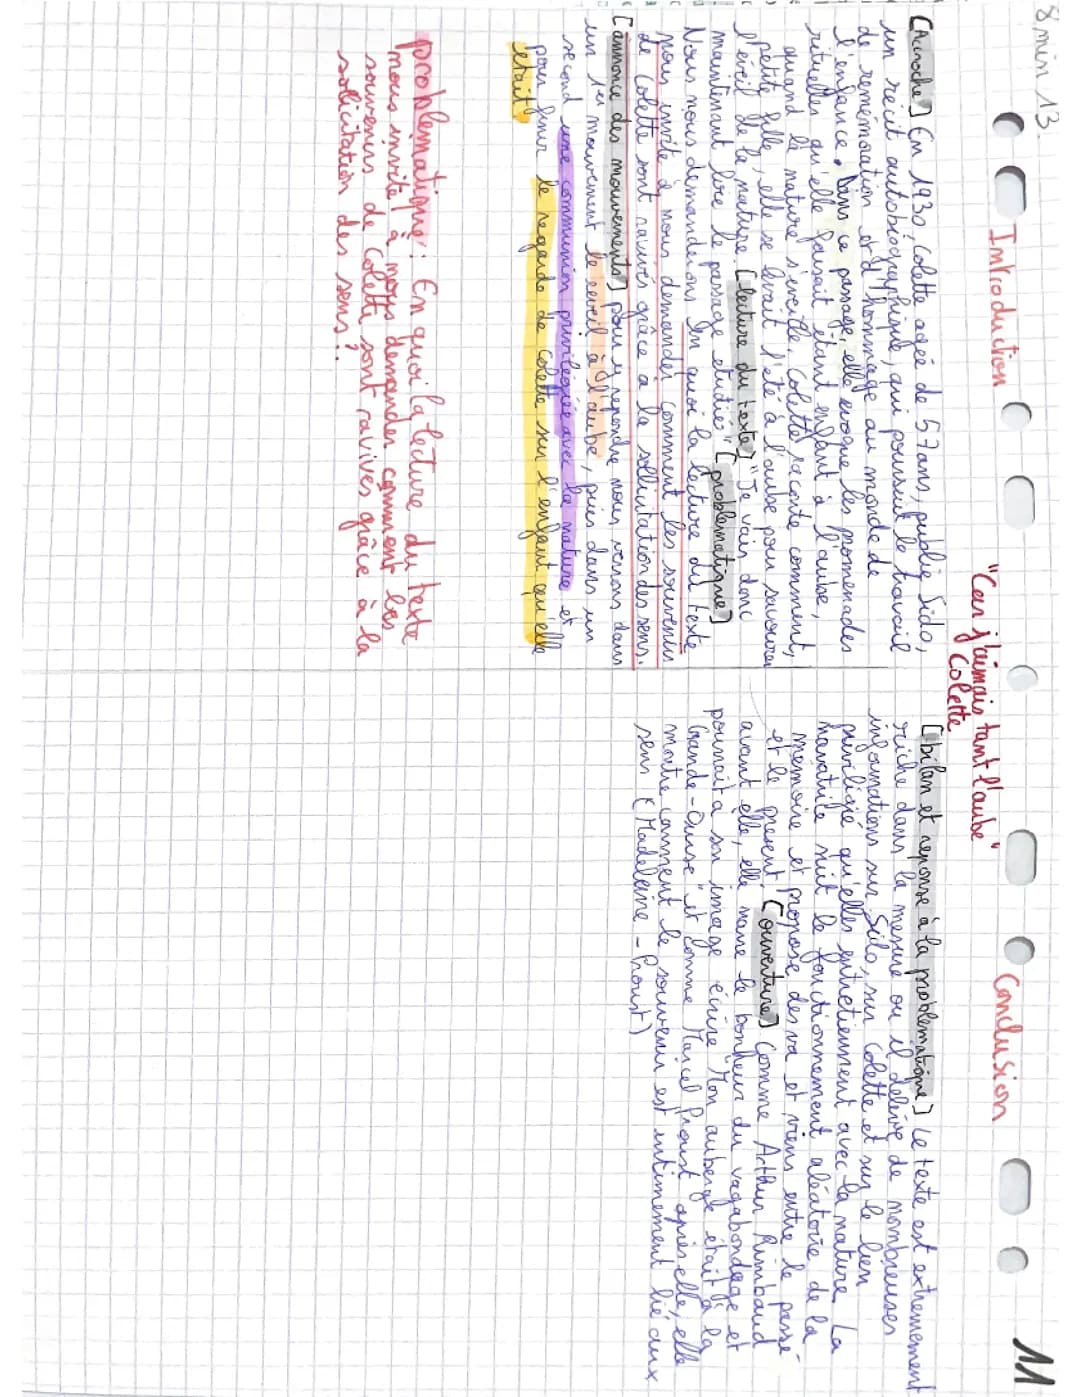 8min 13
11
"Car j'aimais tant l'aube"
Colette
Introduction
[Accroche] En 1930, Colette agée de 57ans, publie Sido,
un récit autobiographique, qui poursuit le travail
de remémoration et d'hommage au monde de
l'enfance. Dans ce passage, elle évoque les promenades
rituelles qu'elle faisait étant enfant à l'aube,
quand la nature s'éveille. Colette raconte comment,
petite fille, elle se levait l'été à l'aube pour savourer
l'éveil de la nature. [lecture du texte] "Je vais donc
maintenant lire le passage etudié." [problematique]
Nous nous demanderons En quoi la lecture du texte
nous invite à nous demander comment les souvenirs
de Colette sont ravivés grâce a la sollicitation des sens.
[annonce des mouvements] pour y repondre nous verrons dans
un 1er mouvement le reveil à l'aube, puis dans un
second une communion privilégiée avec la nature et
pour finir le regarde de Colette sur l'enfant qu'elle
etait
problematique : En quoi la lecture du texte
nous invite à nous demander comment les
souvenirs de Colette sont ravivés grâce à la
solicitation des sens ?
Conclusion
[bilan et reponse à la problematique] Le texte est extremement
riche dans la mesure ou il delivre de nombreuses
informations sur Sido, sur Colette et sur le lien
priviligié qu'elles entretiennent avec la nature. La
narratrice suit le fonctionnement aléatoire de la
mémoire et propose des va et viens entre le passé
et le présent. [ouverture] Comme Arthur Rimbaud
avant elle, elle narre le bonheur du vagabondage et
pourrait a son image écrire "Mon auberge était à la
Grande-Ourse" et comme Marcel Proust après elle, elle
montre comment le souvenir est intimement lié aux
sens (Madeleine - Proust)